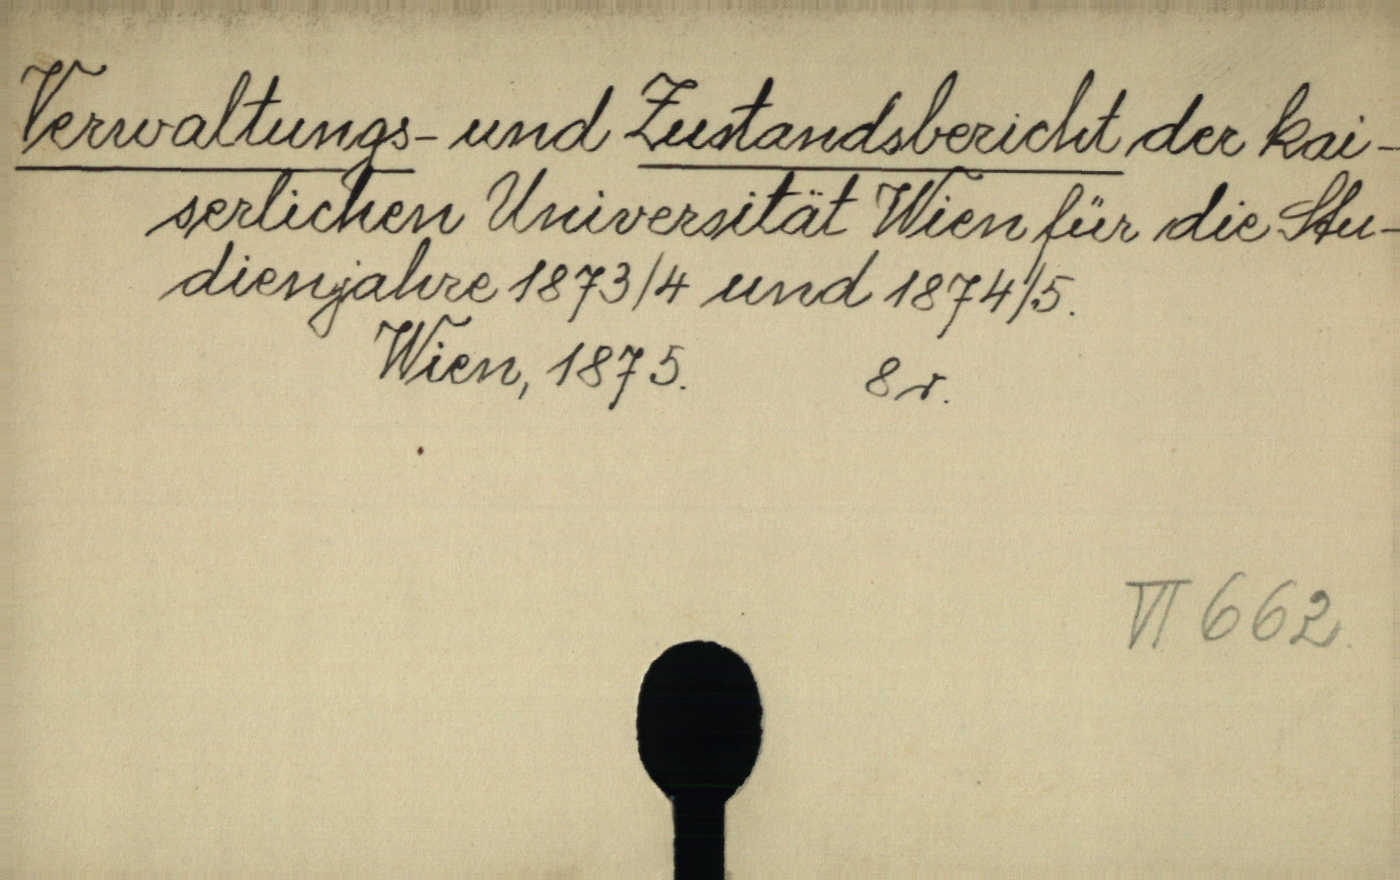 Verwaltungs- und Zustandsbericht der kai-
serlichen Universität Wien für die Stu-
dienjahre 1873/4 und 1874/5.
Wien, 1875. 8r.
VI 662.